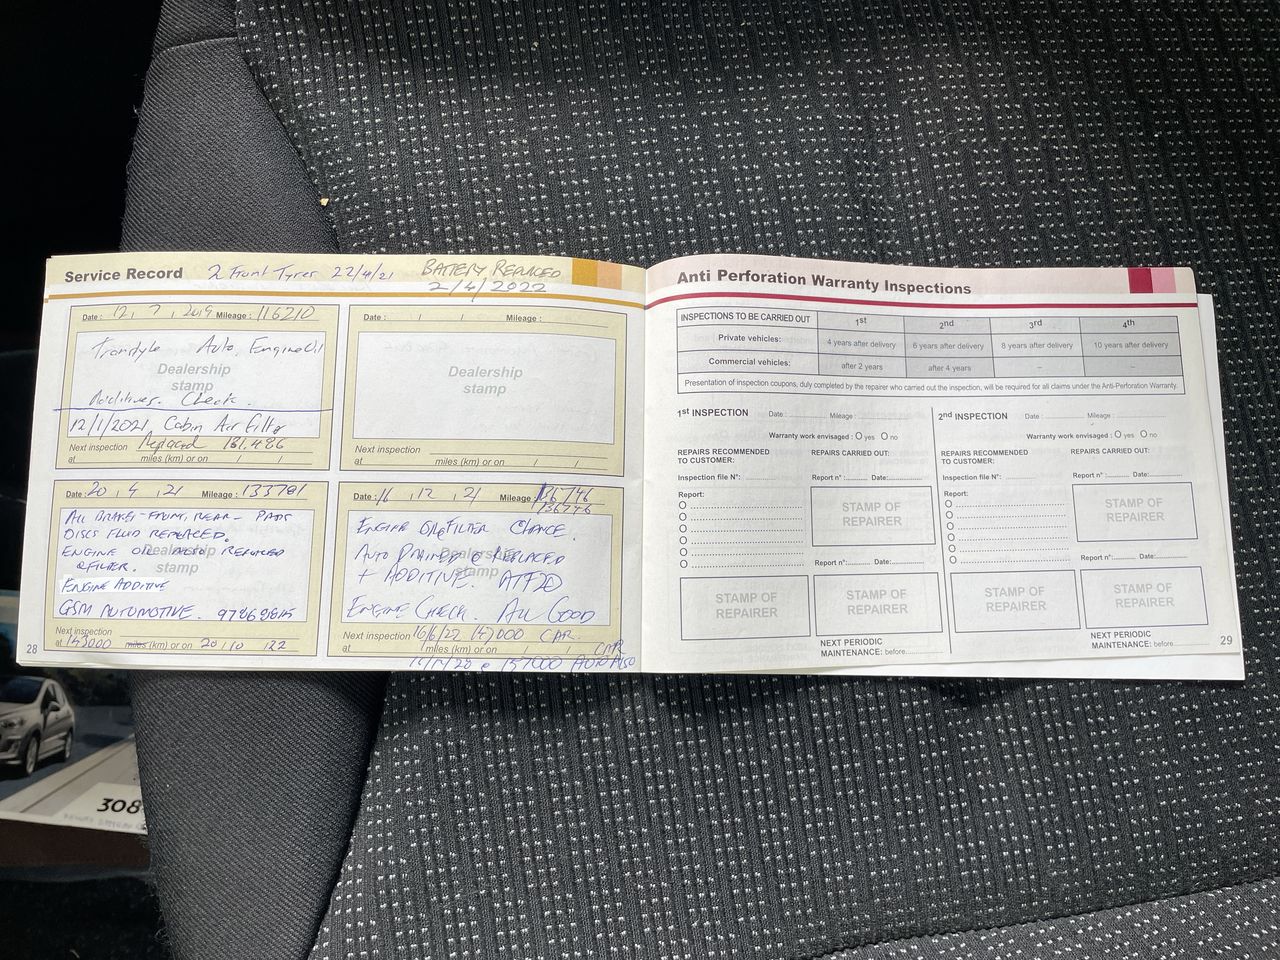 Service Record 2 Front Tyres 22/4/21 BATTERY REPLACED
2/4/2022
Date : 12 , 7 , 2019 Mileage : 116210
Auto, Engine Oil
Dealership
stamp
Additives. Check.
12/1/2021, Cabin Air Filter
Next inspection Replaced 131.486
at miles (km) or on / /
Date : / / Mileage :
Dealership
stamp
Next inspection
at miles (km) or on / /
Date : 20 , 4 , 21 Mileage : 133781
ALL BRAKES - FRONT, REAR - PADS
DISCS FLUID REPLACED.
ENGINE OIL REPLACED
& FILTER.
Dealership
stamp
ENGINE ADDITIVE
GSM AUTOMOTIVE.
Next inspection
at 143000 miles (km) or on 20 / 10 / 22
Date : 16 , 12 , 21 Mileage : 136746
136746
ENGINE OIL & FILTER CHANGE.
AUTO DRAINED & REPLACED
Dealership
+ ADDITIVE. ATF
stamp
ENGINE CHECK. ALL GOOD
Next inspection 16/6/22 147000 CAR.
at miles (km) or on / /
157000 AUTO ALSO
28
Anti Perforation Warranty Inspections
INSPECTIONS TO BE CARRIED OUT 1st 2nd 3rd 4th
Private vehicles: 4 years after delivery 6 years after delivery 8 years after delivery 10 years after delivery
Commercial vehicles: after 2 years after 4 years – –
Presentation of inspection coupons, duly completed by the repairer who carried out the inspection, will be required for all claims under the Anti-Perforation Warranty.
1st INSPECTION Date : Mileage :
Warranty work envisaged : O yes O no
REPAIRS RECOMMENDED
TO CUSTOMER:
REPAIRS CARRIED OUT:
Inspection file N°: Report n°: Date:
Report:
STAMP OF
REPAIRER
Report n°: Date:
STAMP OF
REPAIRER
STAMP OF
REPAIRER
NEXT PERIODIC
MAINTENANCE: before
2nd INSPECTION Date : Mileage :
Warranty work envisaged : O yes O no
REPAIRS RECOMMENDED
TO CUSTOMER:
REPAIRS CARRIED OUT:
Inspection file N°: Report n°: Date:
Report:
STAMP OF
REPAIRER
Report n°: Date:
STAMP OF
REPAIRER
STAMP OF
REPAIRER
NEXT PERIODIC
MAINTENANCE: before
29
308